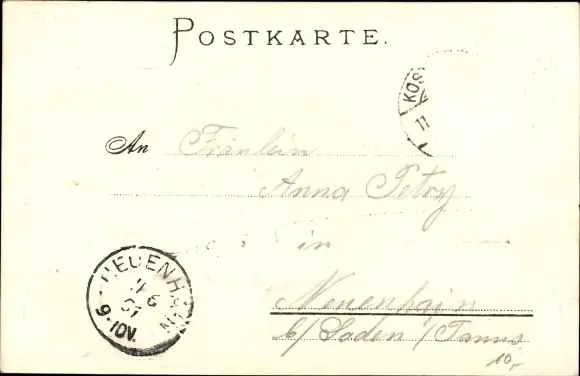 POSTKARTE.
KOS
11
An Fräulein
Anna Petry
in
NEUENHAIN
9-10V.
Neuenhain
b/ Soden /Taunus
10,-